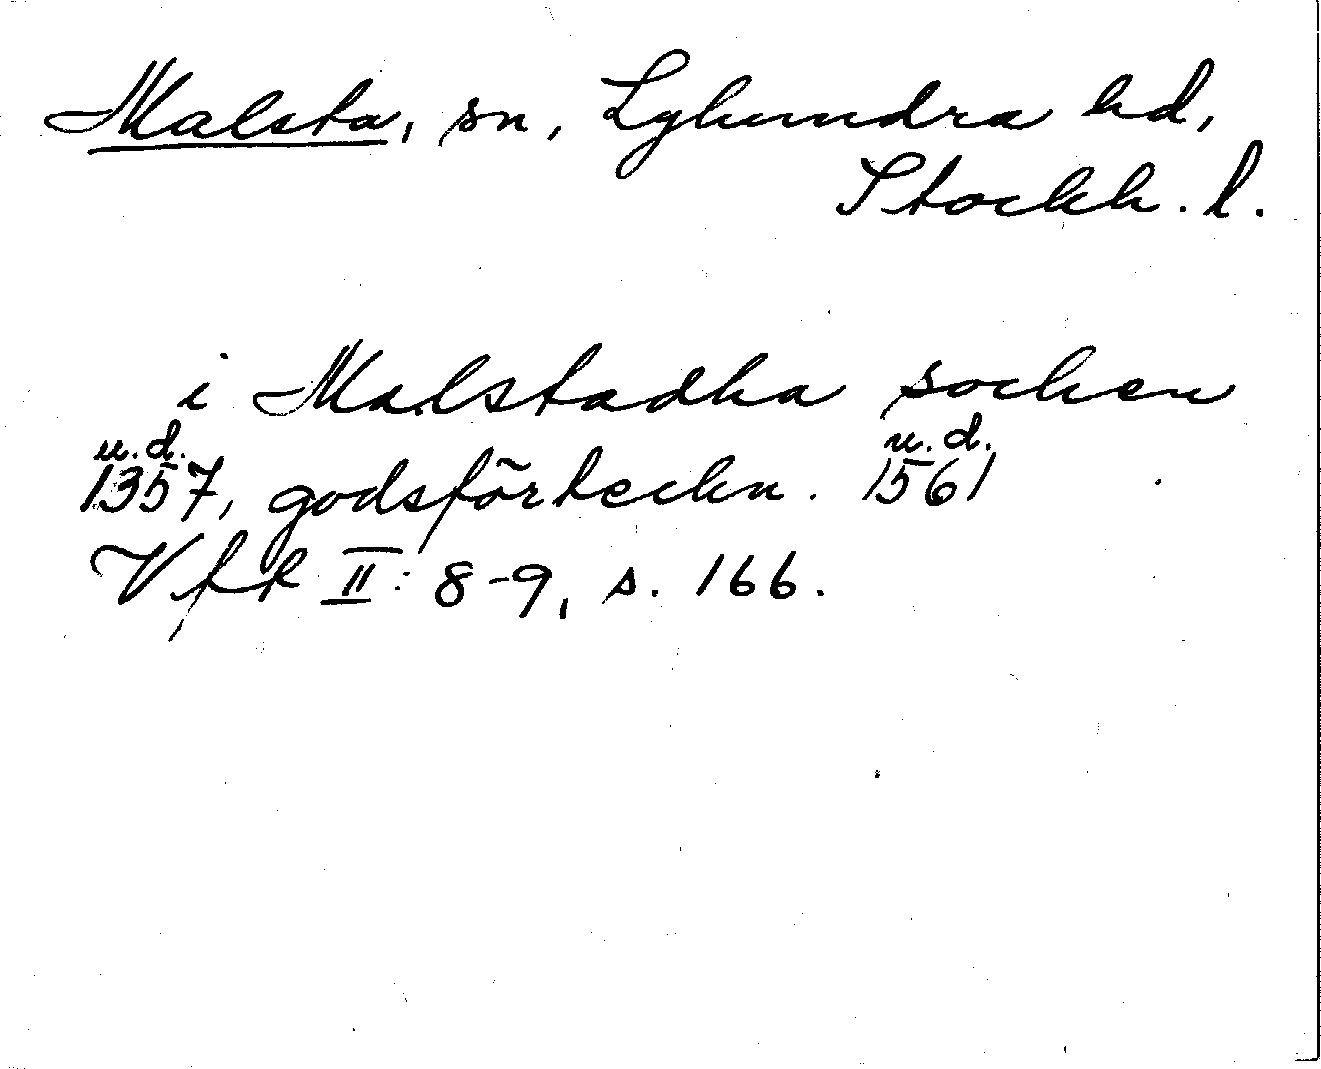 Malsta, sn, Lyhundra hd,
Stockh. l.
i Malstadha socken
u.d. u.d.
1357, godsförteckn. 1561
Vffr II: 8-9, s. 166.